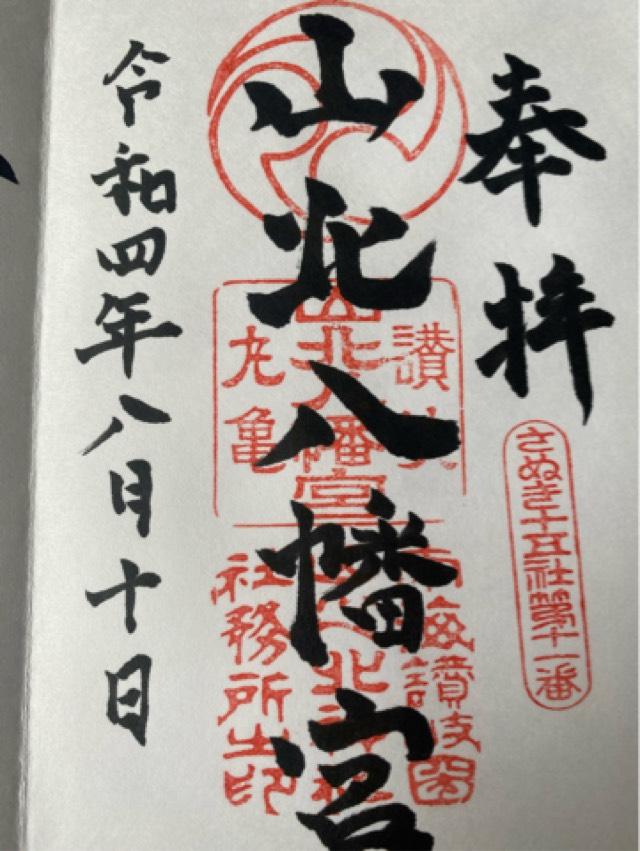 奉拝
さぬき十五社第十一番
山北八幡宮
讃岐
山北八幡宮
丸亀
南海讃岐国
社務所之印
令和四年八月十日